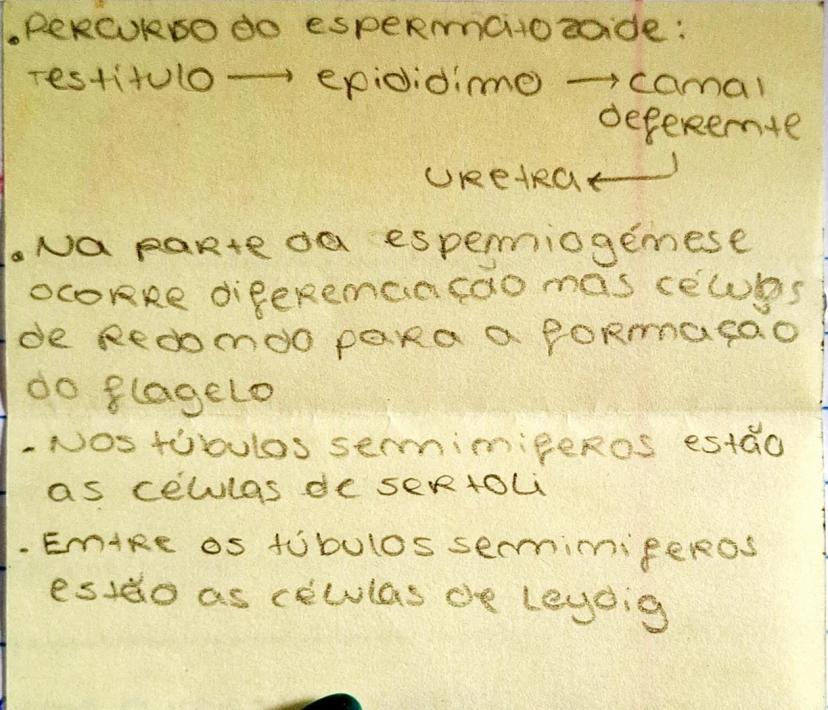 . Percurso do espermatozoide:
Testítulo → epididímo → canal
deferente
uretra ←
. Na parte da espermiogénese
ocorre diferenciação nas células
de redondo para a formação
do flagelo
. Nos túbulos seminíferos estão
as células de sertoli
. Entre os túbulos seminíferos
estão as células de Leydig